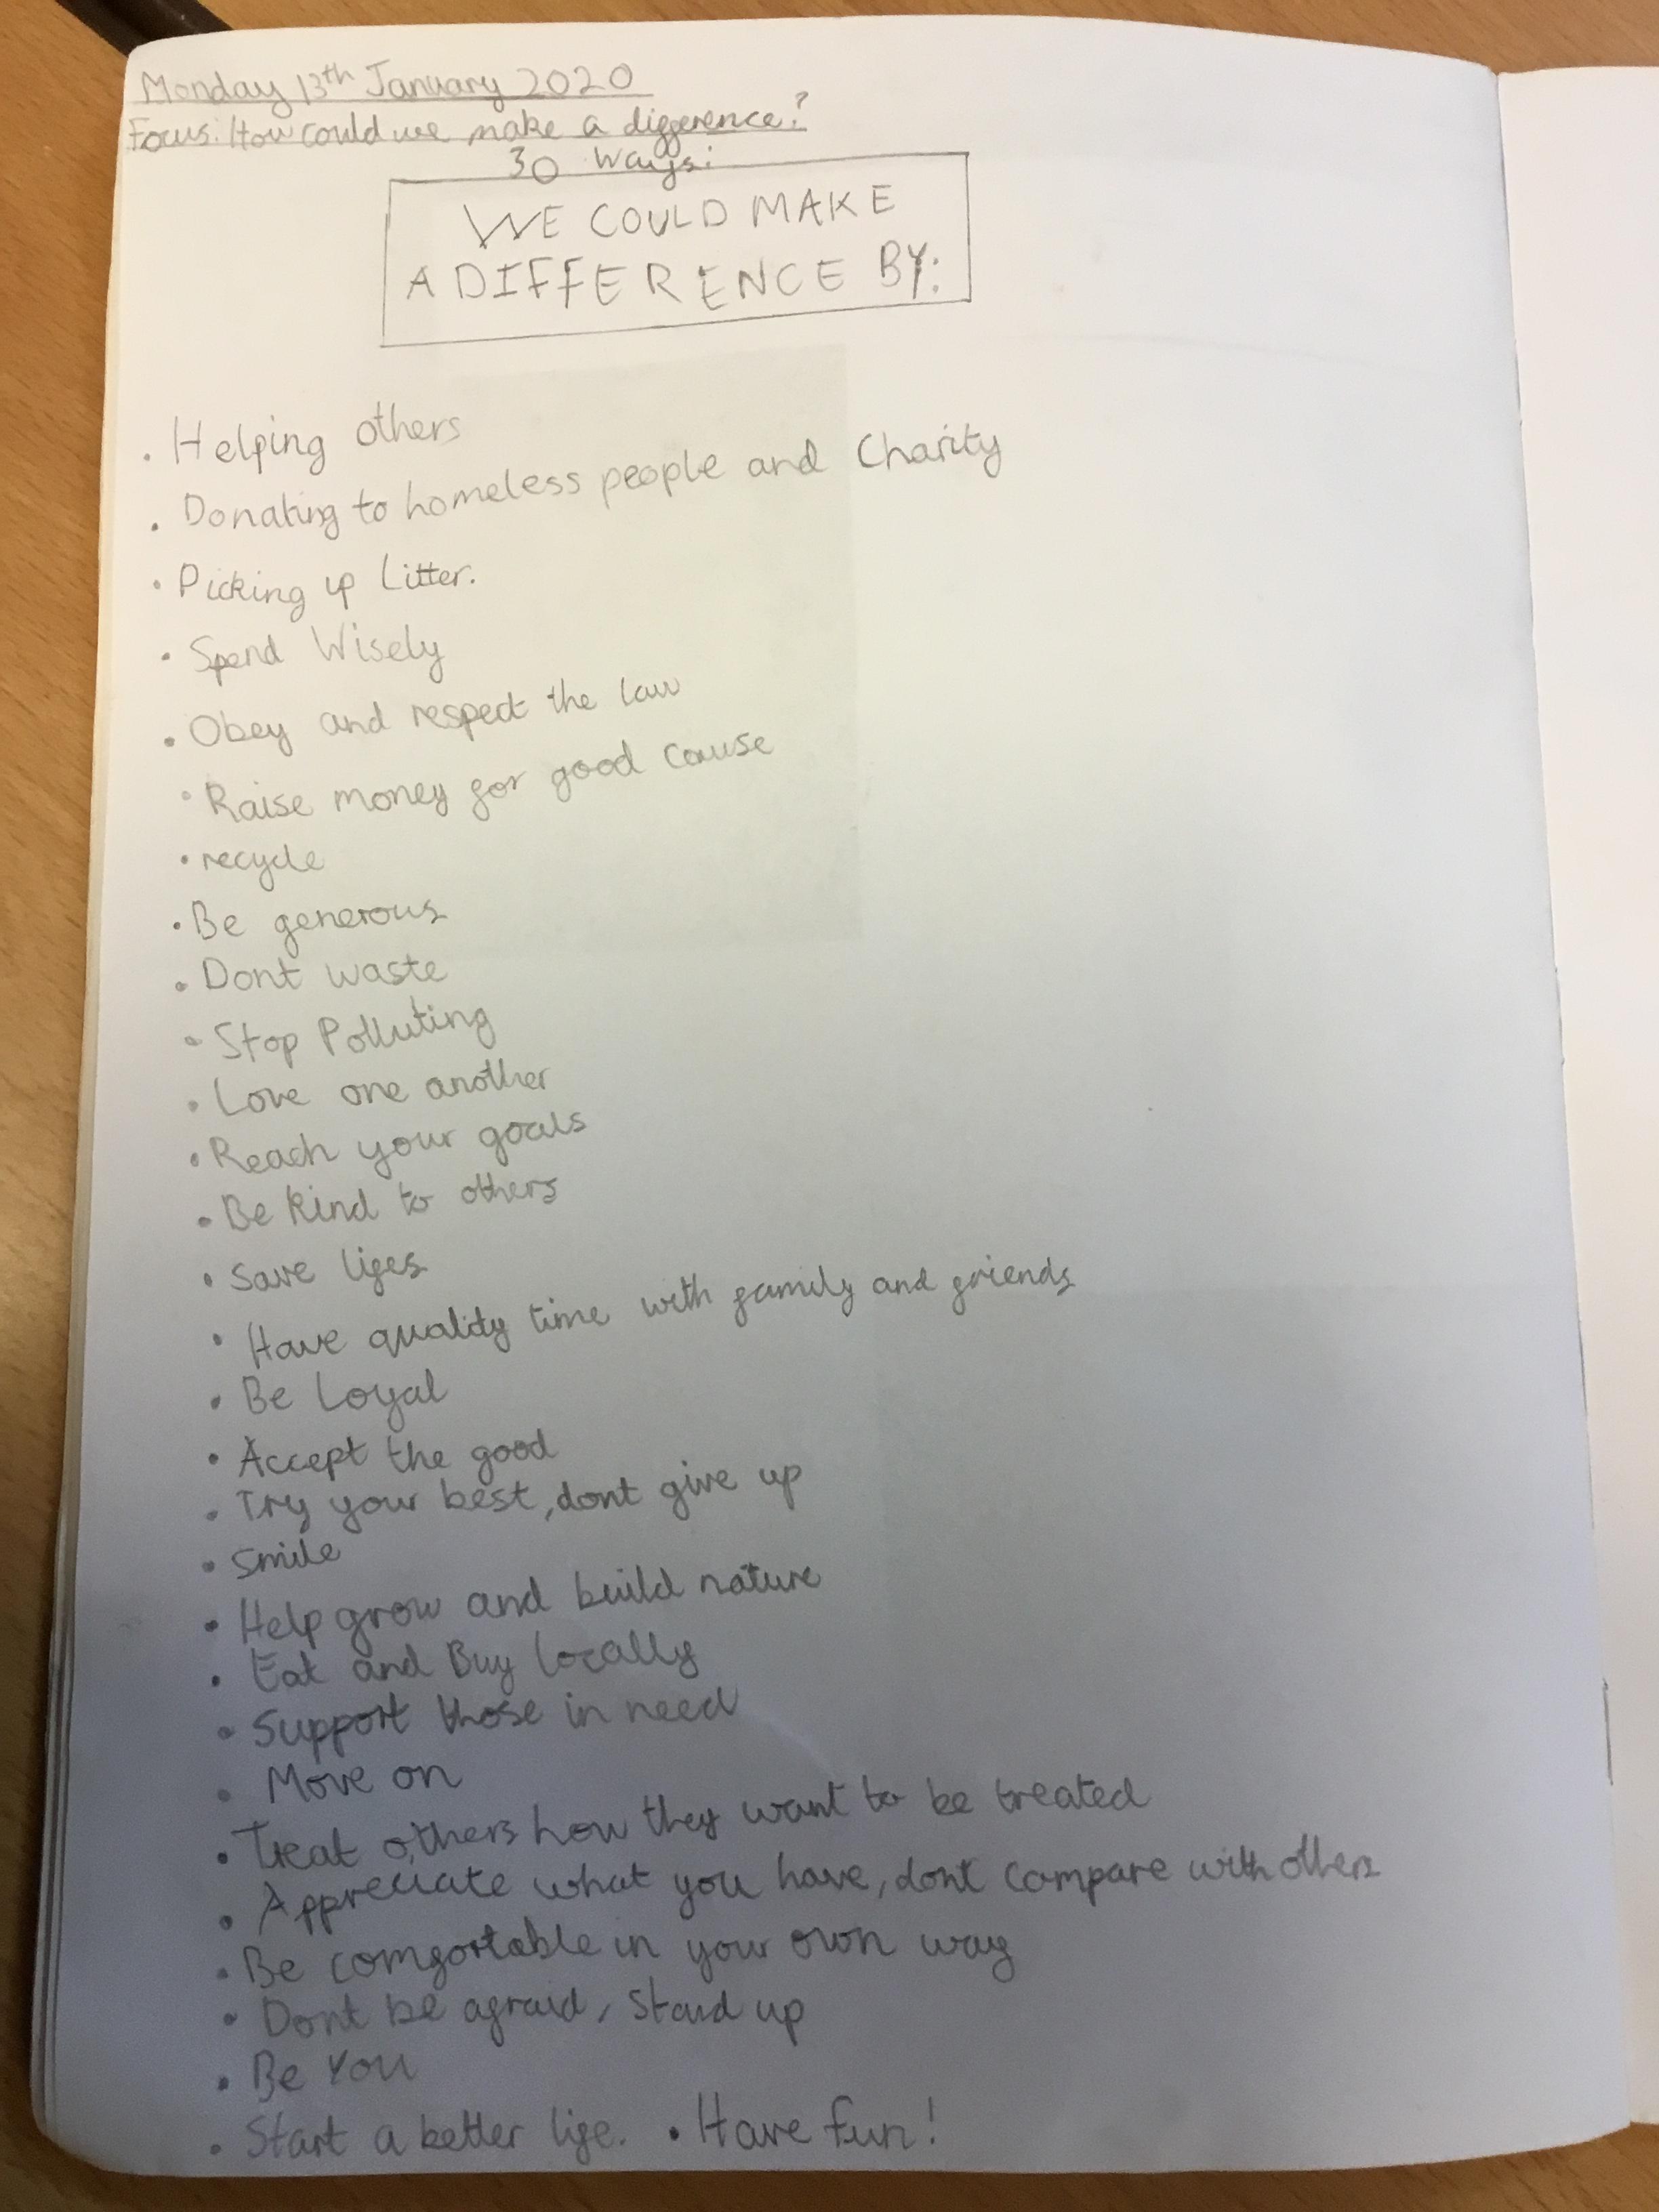 Monday 13th January 2020
Focus: How could we make a difference?
30 ways:
WE COULD MAKE
A DIFFERENCE BY:
· Helping others
· Donating to homeless people and Charity
· Picking up Litter.
· Spend Wisely
· Obey and respect the law
· Raise money for good cause
· recycle
· Be generous
· Dont waste
· Stop Polluting
· Love one another
· Reach your goals
· Be kind to others
· Save lifes
· Have quality time with family and friends
· Be Loyal
· Accept the good
· Try your best, dont give up
· Smile
· Help grow and build nature
· Eat and Buy locally
· Support those in need
· Move on
· Treat others how they want to be treated
· Appreciate what you have, dont compare with others
· Be comfortable in your own way
· Dont be afraid, Stand up
· Be You
· Start a better life. · Have fun!